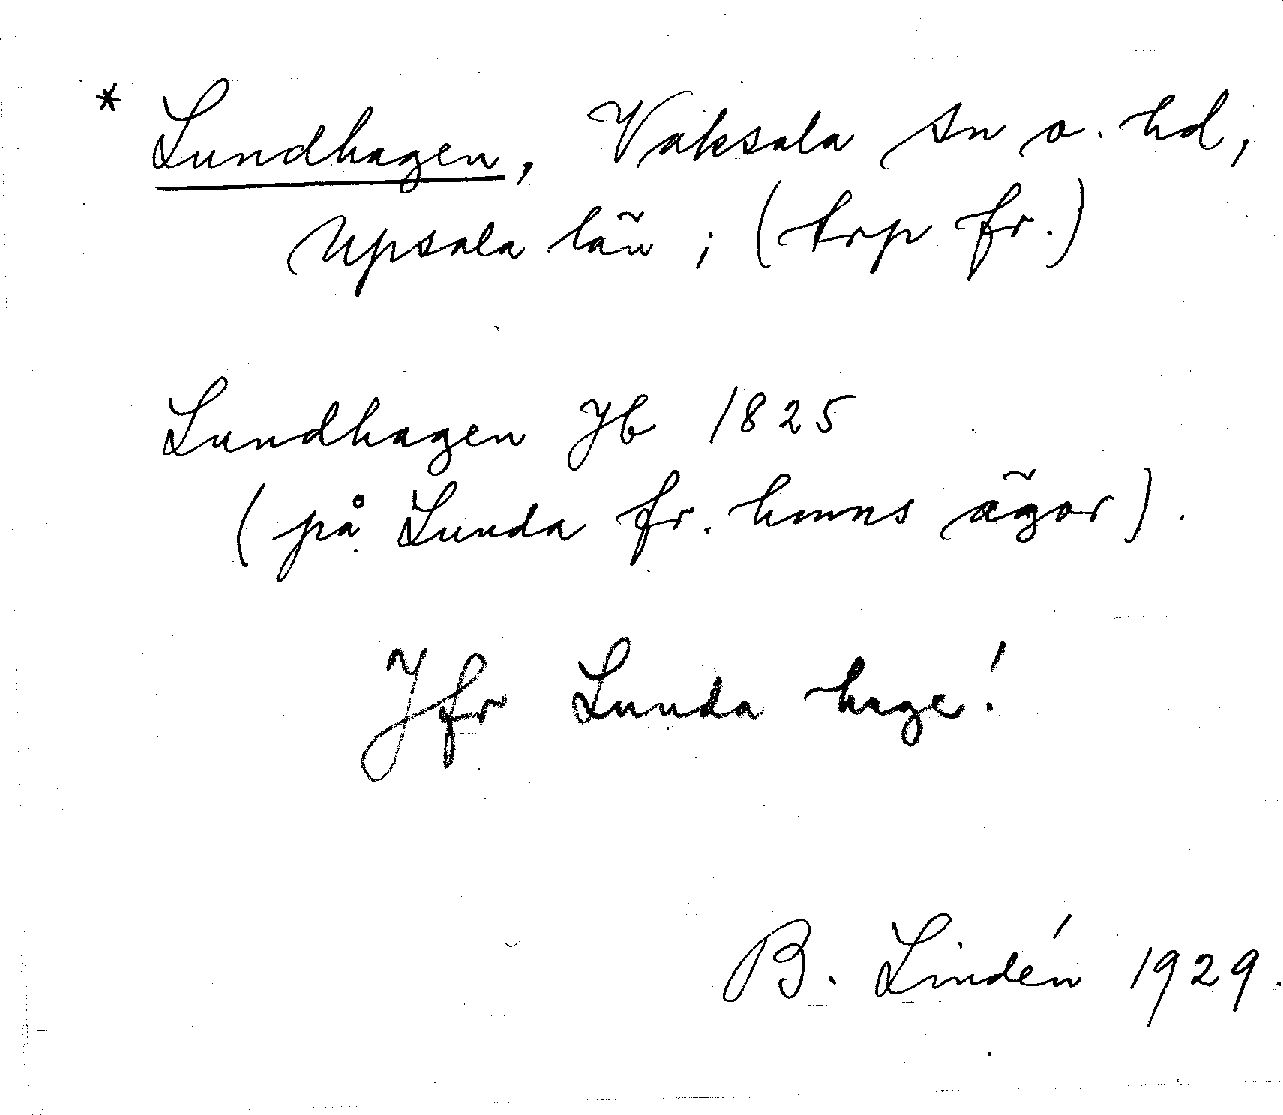 * Lundhagen, Vaksala sn o. hd,
Upsala län ; (trp fr.)
Lundhagen Jb 1825
(på Lunda fr. hmns ägor).
Jfr Lunda hage!
B. Lindén 1929.